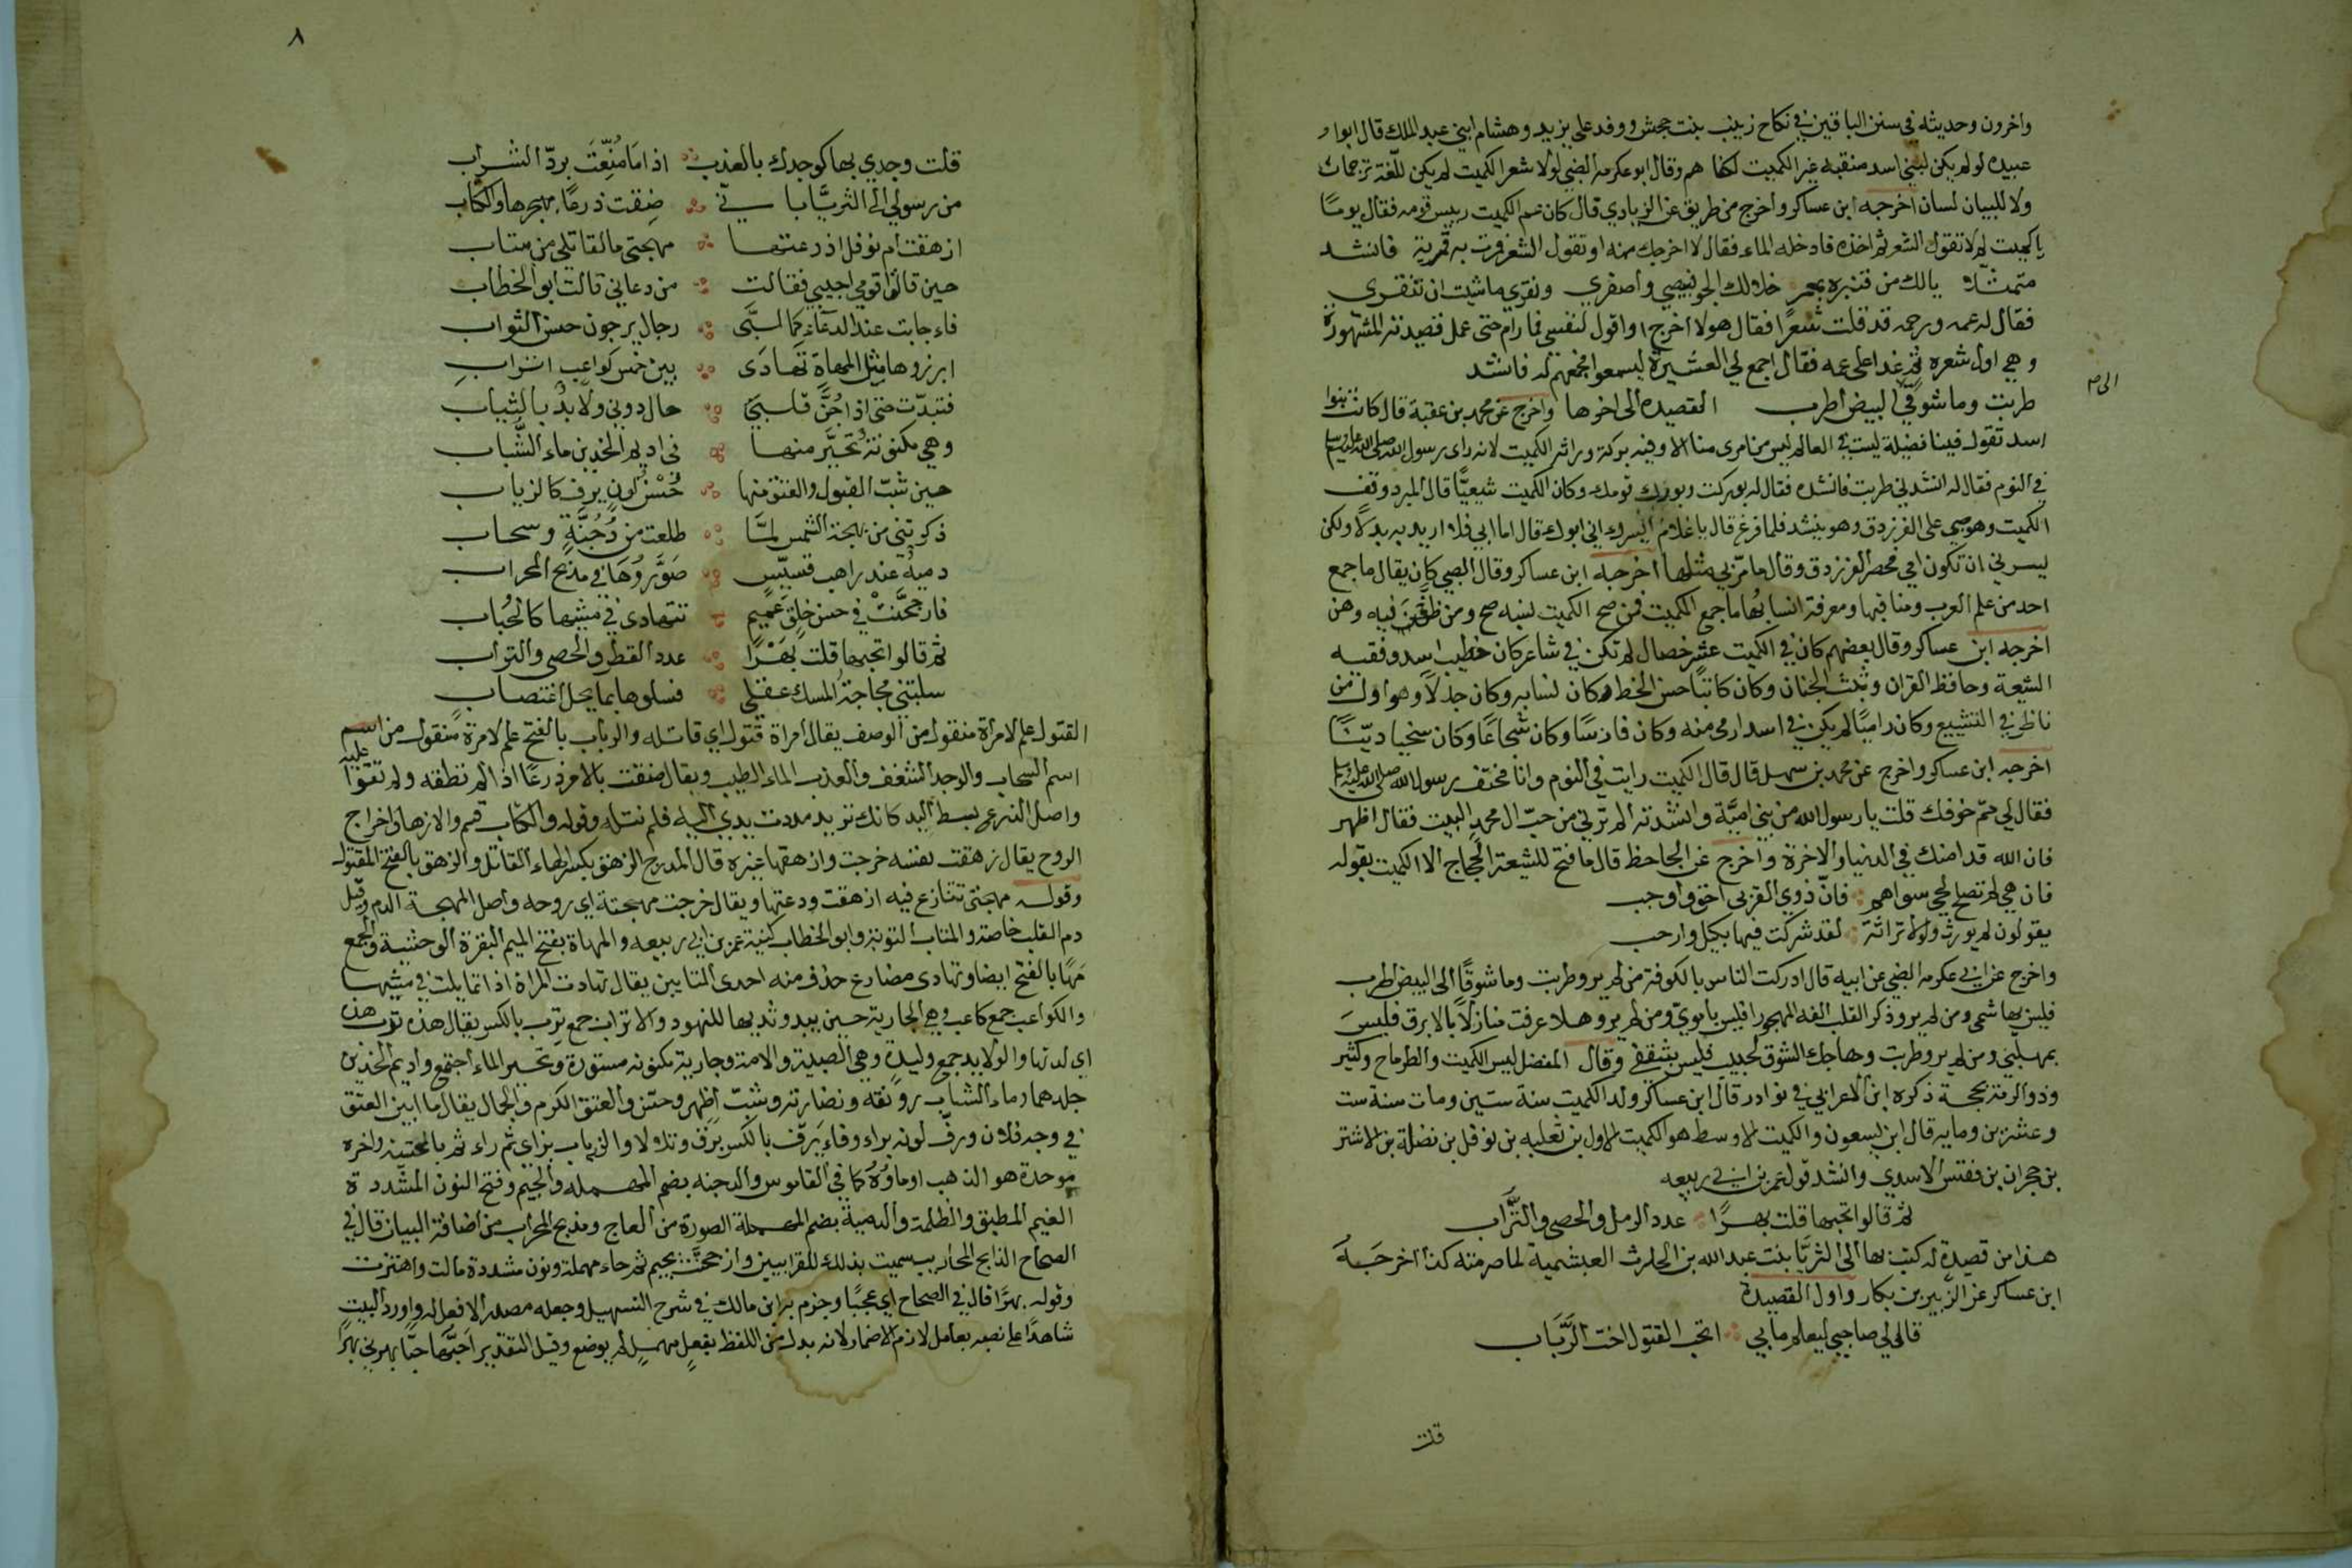 واخرون وحديثه في سنن الباقين في نكاح زينب بنت جحش ووفد على يزيد وهشام ابني عبد الملك قال ابو
عبيده لو لم يكن لبني اسد منقبه غير الكميت لكفاهم وقال ابو عكرمه الضبي لولا شعر الكميت لم يكن للغة ترجمان
ولا للبيان لسان اخرجه ابن عساكر واخرج من طريق عن الزيادي قال كان عم الكميت رييس قومه فقال يوما
يا كميت لم لا تقول الشعر ثم اخذه فادخله الماء فقال لا اخرجك منه او تقول الشعر فمرت به قمرية فانشد
متمثلا يالك من قنبرة بمعمر خلا لك الجو فبيضي واصفري ونقري ما شيت ان تنقري
فقال له عمه ورحمه قد قلت شعرًا فقال هو لا اخرج او اقول لنفسي فما رام حتى عمل قصيدته المشهورة
وهي اول شعره ثم غدا على عمه فقال اجمع لي العشيرة ليسمعوا فجمعهم له فانشد
طربت وما شوقًا الى البيض اطرب القصيده الى اخرها واخرج عن محمد بن عقبة قال كانت بنوا
الى م
اسد تقول فينا فضيلة ليست في العالم ليس من امرى منا الا وفيه بركة وراثه الكميت لانه راى رسول الله صلى الله عليه وسلم
في النوم فقال له انشدني طربت فانشده فقال له بوركت وبورك قومك وكان الكميت شيعيًا قال المبرد وقف
الكميت وهو صبي على الفرزدق وهو ينشد فلما فرغ قال يا غلام ايسرك اني ابوك قال اما ابي فلا اريد به بدلًا ولكن
يسرني ان تكون امي فحصر الفرزدق وقال ما مر بي مثلها اخرجه ابن عساكر وقال الضبي كان يقال ما جمع
احد من علم العرب ومناقبها ومعرفة انسابها ما جمع الكميت فمن صحح الكميت نسبه صح ومن طعن فيه وهن
اخرجه ابن عساكر وقال بعضهم كان في الكميت عشر خصال لم تكن في شاعر كان خطيب اسد وفقيه
الشيعة وحافظ القران وثبت الجنان وكان كاتبًا حسن الخط وكان نسابه وكان جدلًا وهو اول من
ناظر في التشيع وكان راميًا لم يكن في اسد ارمى منه وكان فارسًا وكان شجاعًا وكان سخيا ديّنًا
اخرجه ابن عساكر واخرج عن محمد بن سهل قال قال الكميت رايت في النوم وانا مختف رسول الله صلى الله عليه وسلم
فقال لي مم خوفك قلت يا رسول الله من بني امية وانشدته الم ترني من حب ال محمد البيت فقال اظهر
فان الله قد امنك في الدنيا والاخرة واخرج عن الجاحظ قال ما فتح للشيعة الحجاج الا الكميت بقوله
فان هي لم تصلح لحي سواهم فان ذوي القربى احق واوجب
يقولون لم يورث ولولا تراثة لقد شركت فيها بكيل وارحب
واخرج عن ابي عكرمه الضبي عن ابيه قال ادركت الناس بالكوفة من لم يرو طربت وما شوقًا الى البيض اطرب
فليس بهاشمي ومن لم يرو ذكر القلب الفه المهجورا فليس باموي ومن لم يرو هلا عرفت منازلًا بالابرق فليس
بمهلبي ومن لم يرو طربت وهاجك الشوق الحثيث فليس بثقفي وقال المفضل ليس الكميت والطرماح وكثير
وذو الرمة بحجة ذكره ابن الاعرابي في نوادره قال ابن عساكر ولد الكميت سنة ستين ومات سنة ست
وعشرين وماية قال ابن يسعون والكميت الاوسط هو الكميت الاول بن ثعلبه بن نوفل بن نضلة بن الاشتر
بن حجوان بن فقعس الاسدي وانشد قول عمر بن ابي ربيعه
ثم قالوا تحبها قلت بهرًا عدد الرمل والحصى والتراب
هذا من قصيدة له كتب بها الى الثريا بنت عبد الله بن الحارث العبشمية لما صرمته كذا اخرجه
ابن عساكر عن الزبير بن بكار واول القصيدة
قال لي صاحبي ليعلم مابي اتحب القتول اخت الرَّباب
قلت
٨
قلت وجدي بها كوجدك بالعذب اذا ما مُنِعْتَ برد الشراب
من رسولي الى الثريا باني ضِقت ذرعًا بهجرها والكتاب
ازهقت ام نوفل اذ دعتها مهجتي ما لقاتلي من متاب
حين قالوا قومي اجيبي فقالت من دعاني قالت ابو الخطاب
فاجابت عند الدعاء كما لبَّى رجال يرجون حسن الثواب
ابرزوها مثل المهاة تهادى بين خمس كواعب اتراب
فتبدت حتى اذا جُنَّ قلبي حال دوني ولايد بالثياب
وهي مكنونة تحيَّر منها في اديم الخدين ماء الشَّباب
حين شبّ القتول والعتق منها حُسْن لونٍ يرف كالزرياب
ذكرتني من بهجة الشمس لمَّا طلعت من دُجُنَّةٍ وسحاب
دمية عند راهب قسّيس صَوَّرُوهَا في مذبح المحراب
فارجحنّتْ في حسن خلق عميمٍ تتهادى في مشيها كالحُباب
ثم قالوا تحبها قلت بَهْرًا عدد القطر والحصى والتراب
سلبتني مجاجة المسك عقلي فسلوها بما يحل اغتصاب
القتول علم لامرأة منقول من الوصف يقال امراة قتول اي قاتله والرباب بالفتح علم لامرة منقول من اسم
اسم السحاب والوجد الشغف والعذب الماء الطيب ويقال ضقت بالامر ذرعًا اذا لم تطقه ولم تقو عليه
واصل الذرع بسط اليد كانك تريد مددت يدي اليه فلم تنله وقوله والكتاب قسم والازهاق اخراج
الروح يقال زهقت نفسه خرجت وازهقها غيره قال المديح الزهق بكسر الهاء القاتل والزهق بالفتح المقتول
وقوله مهجتي تنازع فيه ازهقت ودعتها ويقال خرجت مهجته اي روحه واصل المهجة الدم وقيل
دم القلب خاصة والمتاب التوبة وابو الخطاب كنية عمر بن ابي ربيعه والمهاة بفتح الميم البقرة الوحشية والجمع
مَهًا بالفتح ايضا وتهادى مضارع حذف منه احدى التايين يقال تهادت المراة اذا تمايلت في مشيها
والكواعب جمع كاعب وهي الجارية حين يبدو ثديها للنهود والاتراب جمع تِرب بالكسر يقال هذه ترب هذه
اي لدتها والولايد جمع وليدة وهي الصبية والامة وجارية مكنونه مستورة وتحير الماء اجتمع واديم الخدين
جلدهما وماء الشباب رونقه ونضارته وشبّ اظهر وحسّن والعتق الكرم والجمال يقال ما ابين العتق
في وجه فلان ورفّ لونه براء وفاء يَرِفّ بالكسر برق وتلالا والزرياب بزاي ثم راء ثم بالتحتية واخره
موحدة هو الذهب او ماؤه كما في القاموس والدجنه بضم المهملة والجيم وفتح النون المشددة
الغيم المطبق والظلمة والدمية بضم المهملة الصورة من العاج ومذبح المحراب من اضافة البيان قال في
الصحاح المذابح المحاريب سميت بذلك للقرابين وارجحنّت بجيم ثم حاء مهملة ونون مشددة مالت واهتزت
وقوله بهرًا قال في الصحاح اي عجبًا وجزم به ابن مالك في شرح التسهيل وجعله مصدرا لا فعل له واورد البيت
شاهدًا على نصبه بعامل لازم الاضمار لانه بدل من اللفظ بفعلٍ مهملٍ لم يوضع وقيل التقدير احبّها حبًّا بهرني بهرًا